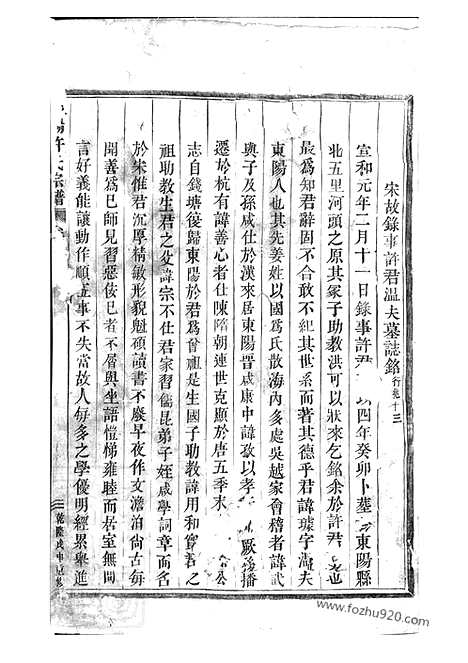 宋故錄事許君溫夫墓誌銘 行 十三
宣和元年二月十一日錄事許君 四年癸卯卜塟 東陽縣
北五里河頭之原其冢子助教洪可以狀來乞銘余於許君 也
最為知君辭固不合敢不紀其世系而著其德乎君諱璩字溫夫
東陽人也其先姜姓以國為氏散海內多處吳越家會稽者諱武
與子及孫咸仕於漢來居東陽晋咸康中諱孜以孝 厥後播
遷於杭有諱善心者仕陳隋朝連世克顯於唐五季末
志自錢塘復歸東陽於君為曾祖是生國子助教諱用和 君之
祖助教生君之父諱宗不仕君家習儒昆弟子姪咸學詞章而名
於朱惟君沉厚精敏形貌魁碩讀書不廢早夜作文澹泊尚古每
聞善為已師見習惡佞已者不屑與坐語愷悌雍睦而居室無間
言好義能讓動作順 事不失當故人每多之學優明經累舉進
許氏宗譜
乾隆戊申
www.fozhu920.com